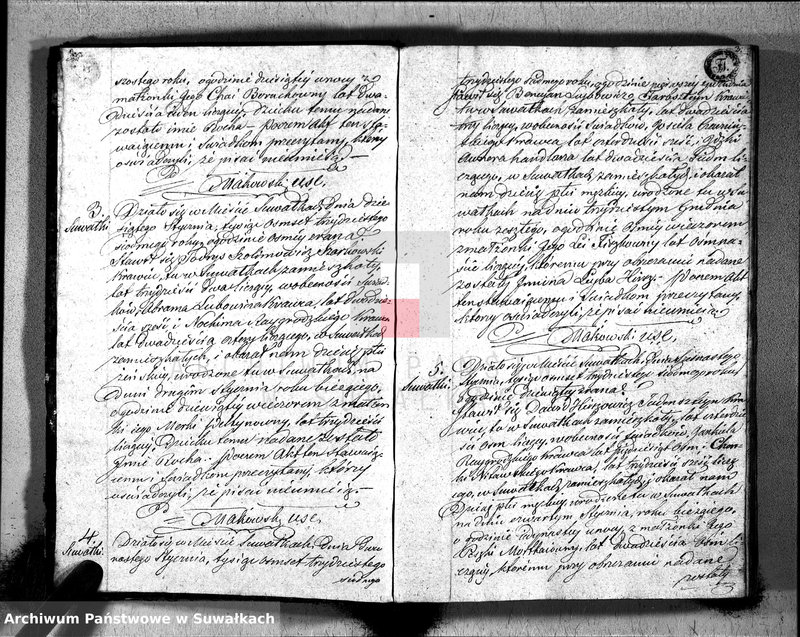 szóstego roku, o godzinie dziesiątej w nocy z
małżonki jego Chai Boruchowny lat dwa-
dzieścia liczącej, dziecku temu nadane
zostało imie Rocha – poczem Akt ten sta-
wającemu i świadkom przeczytany, którzy
oświadczyli, że pisać nieumieią –
Makowski usc.
3.
Suwałki
Działo się w Mieście Suwałkach, dnia dzie-
siątego Stycznia, tysiąc ośmset trzydziestego
siódmego roku, o godzinie ósmey zrana
Stawił się
krawiec, tu w Suwałkach zamieszkały,
lat trzydzieści dwa liczący, w obecności świad-
ków, Abrama Lubowicza krawca, lat dwadzie-
ścia sześć, i Nochima Raygrodzkiego krawca
lat dwadzieścia cztery liczącego, w Suwałkach
zamieszkałych, i okazał nam dziecię płci
żeńskiey, urodzone tu w Suwałkach, na
dniu drugim Stycznia roku bieżącego,
o godzinie dziewiątey wieczorem z małżon-
ki jego Merki lat trzydzieści
liczącey, Dziecku temu nadane zostało
imie Rocha. poczem Akt ten stawają-
cemu i świadkom przeczytany, którzy
oświadczyli, że pisać nieumieią –
Makowski usc.
4.
Suwałki
Działo się w Mieście Suwałkach, dnia
nastego Stycznia, tysiąc ośmset trzydziestego
siódmego
trzydziestego siódmego roku, o godzinie pierwszey z południa
Stawił się krawiec
tu w Suwałkach zamieszkały, lat dwadzieścia
trzy liczący, w obecności świadków,
krawca, lat czterdzieści sześć, i
handlarza lat dwadzieścia siedm li-
czącego, w Suwałkach zamieszkałych, i okazał
nam dziecię płci męzkiey, urodzone tu w Su-
wałkach na dniu trzydziestym Grudnia
roku zeszłego, o godzinie ósmey wieczorem
z małżonki jego lat ośmna-
ście liczącey, któremu przy obrzezaniu nadane
zostały imiona Hirsz – poczem Akt
ten stawającemu i świadkom przeczytany,
którzy oświadczyli, że pisać nieumieią –
Makowski usc.
5.
Suwałki
Działo się w Mieście Suwałkach, dnia
Stycznia, tysiąc ośmset trzydziestego siódmego roku
o godzinie dziewiątey zrana
Stawił się Dawid kra-
wiec, tu w Suwałkach zamieszkały, lat czterdzie-
ści ośm liczący, w obecności świadków, Jankiela
Raygrodzkiego krawca, lat pięćdziesiąt ośm –
krawca, lat trzydzieści sześć liczą-
cego, w Suwałkach zamieszkałych, i okazał nam
Dziecię płci męzkiey, urodzone tu w Suwałkach
na dniu czwartym Stycznia, roku bieżącego,
o godzinie w nocy, z małżonki jego
lat dwadzieścia ośm li-
czącey, któremu przy obrzezaniu nadane
zostały
Archiwum Państwowe w Suwałkach